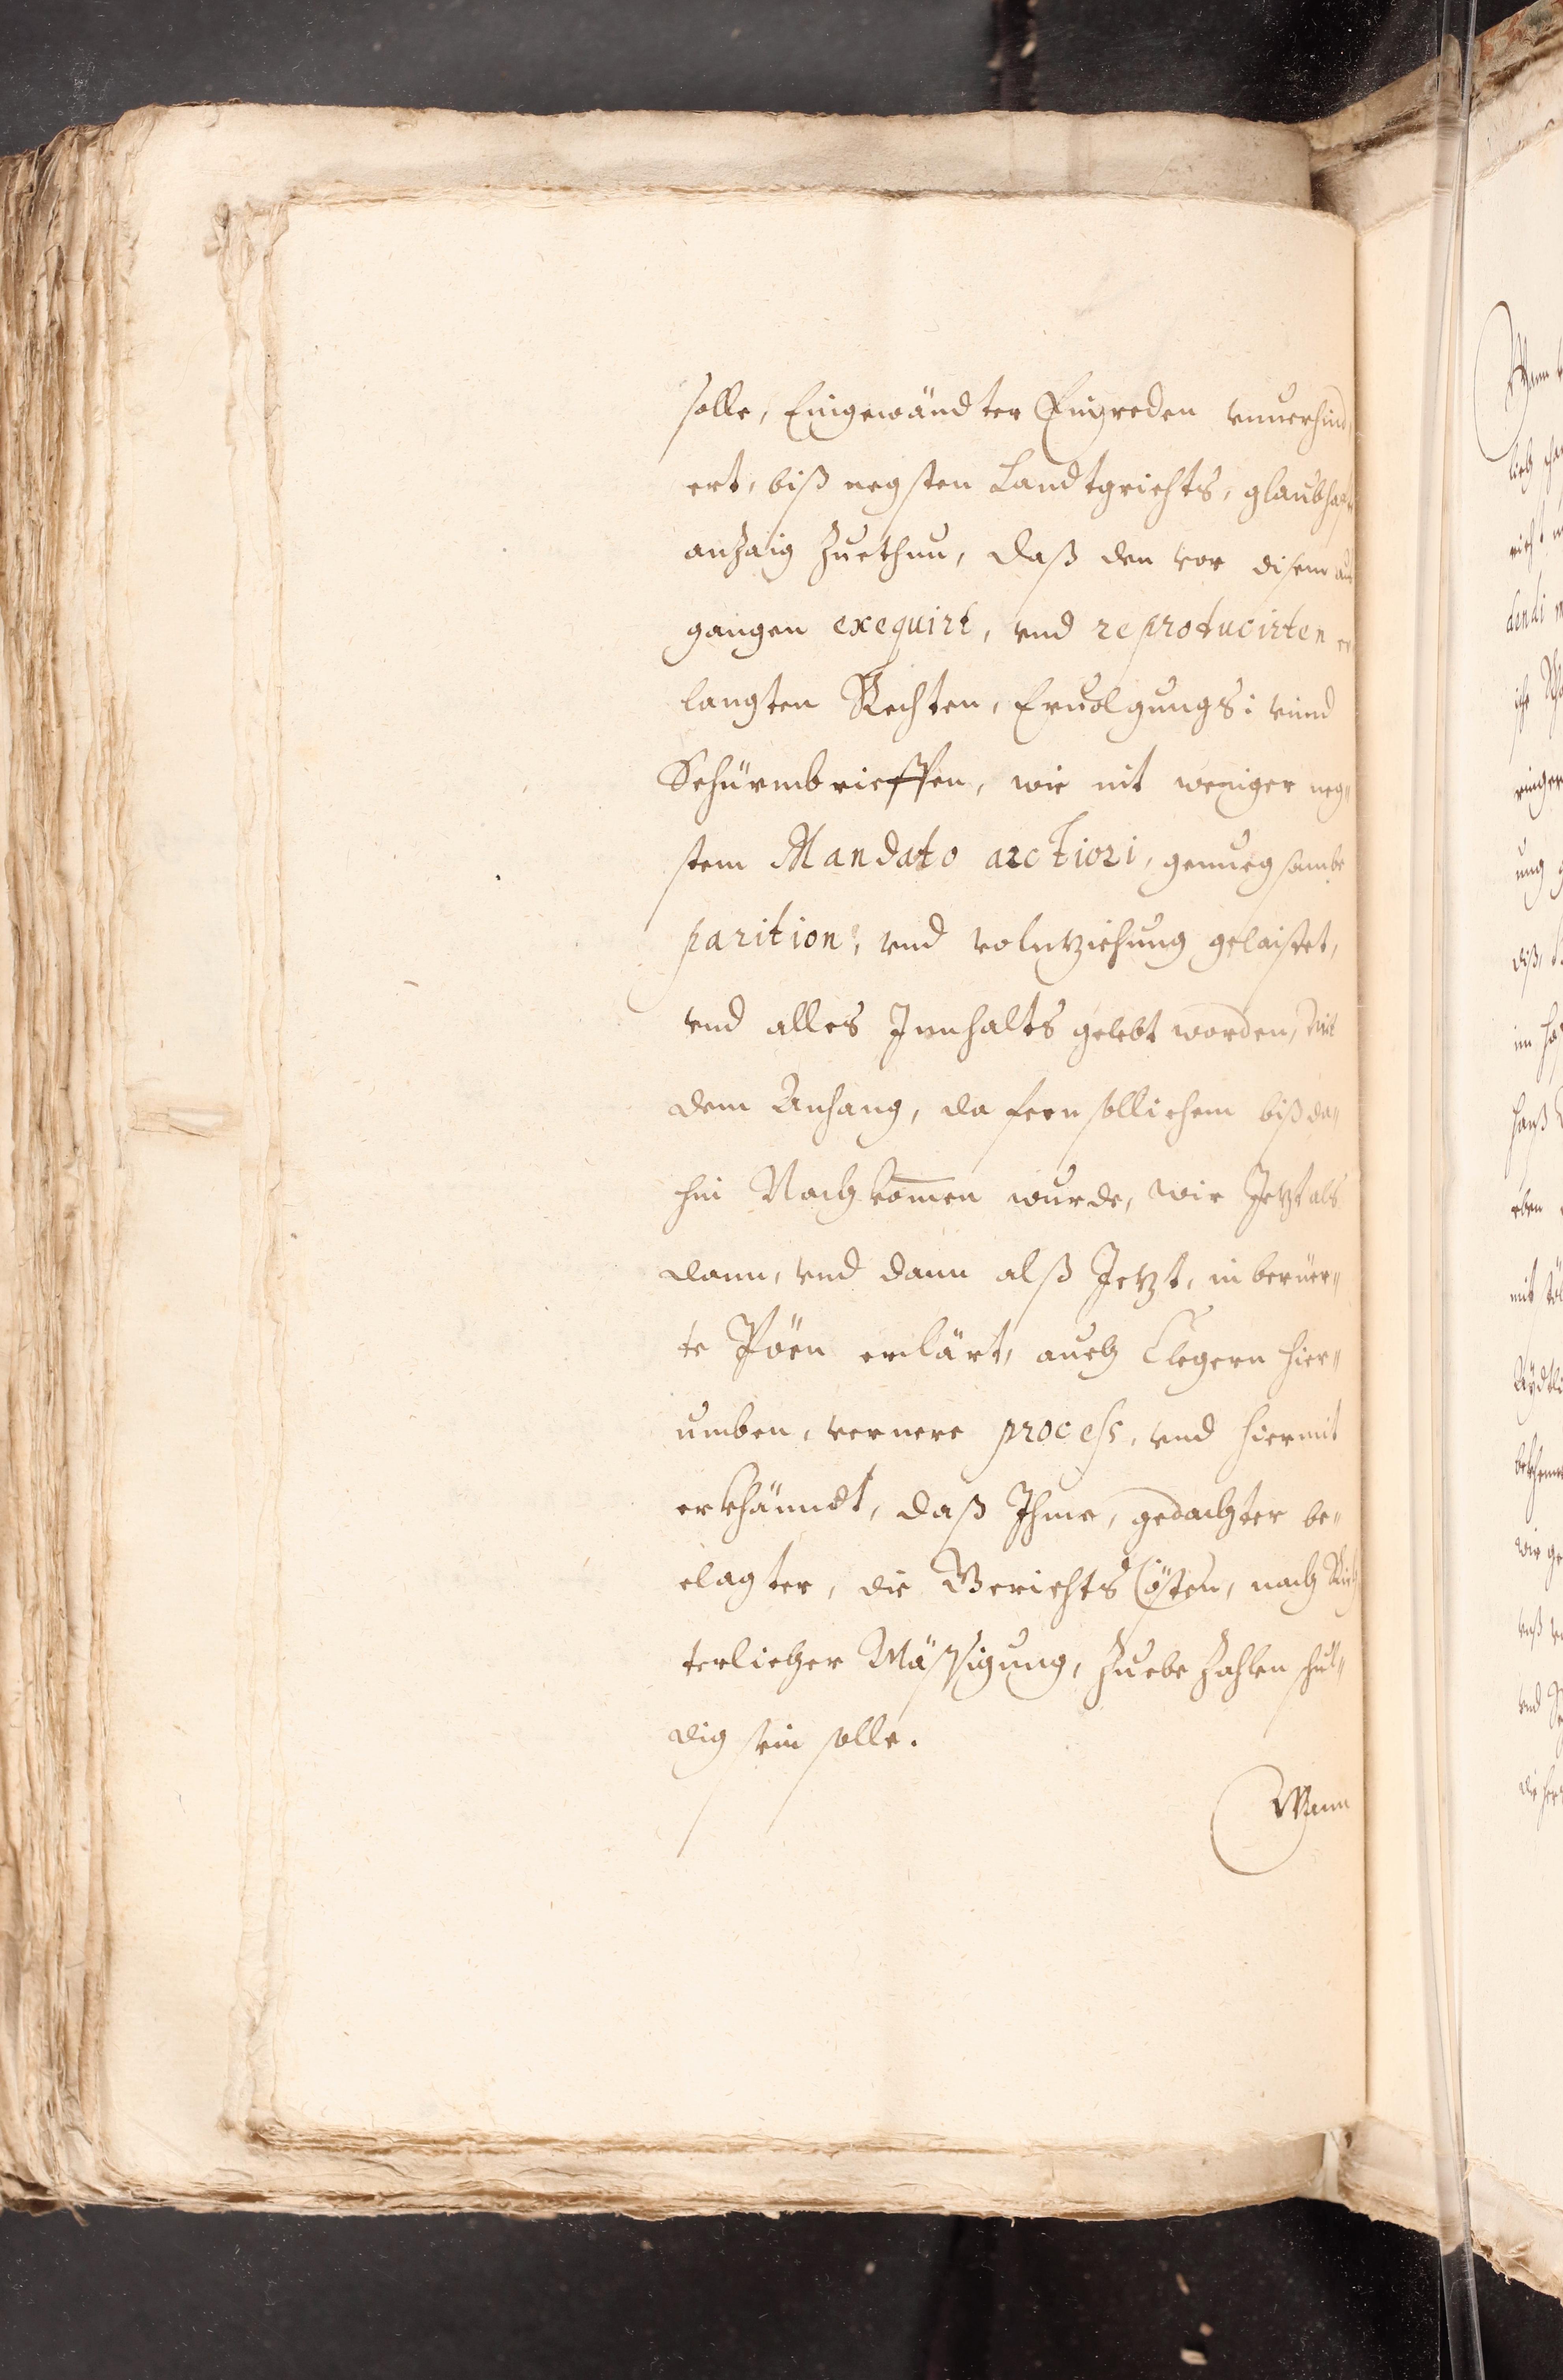 solle, Eingewändter Einreden vnuerhind
ert, biß negsten Landtgrichts, glaubhafft
anzaig zuethun, daß den vor disem auß
gangen exequirt, vnd reproducirten er
langten Rechten, Eruolgungs: vnnd
Schürmbrieffen, wie nit weniger neg„
stem Mandato arctiori, genuegsambe
parition, vnd volnziehung gelaistet,
vnd alles Innhalts gelebt worden, mit
dem Anhang, da fern sollichem biß da„
hin Nachkommen wurde, wir Jetzt als
dann, vnd dann alß Jetzt, in berüer„
te Pöen erclärt, auch Clegern hier„
umben, vernere process, vnd hiermit
erkhänndt, daß Ihme, gedachter be„
clagter, die Gerichts Cösten, nach Rich
terlicher Mässigung, zuebezahlen schul„
dig sein solle.
Wann